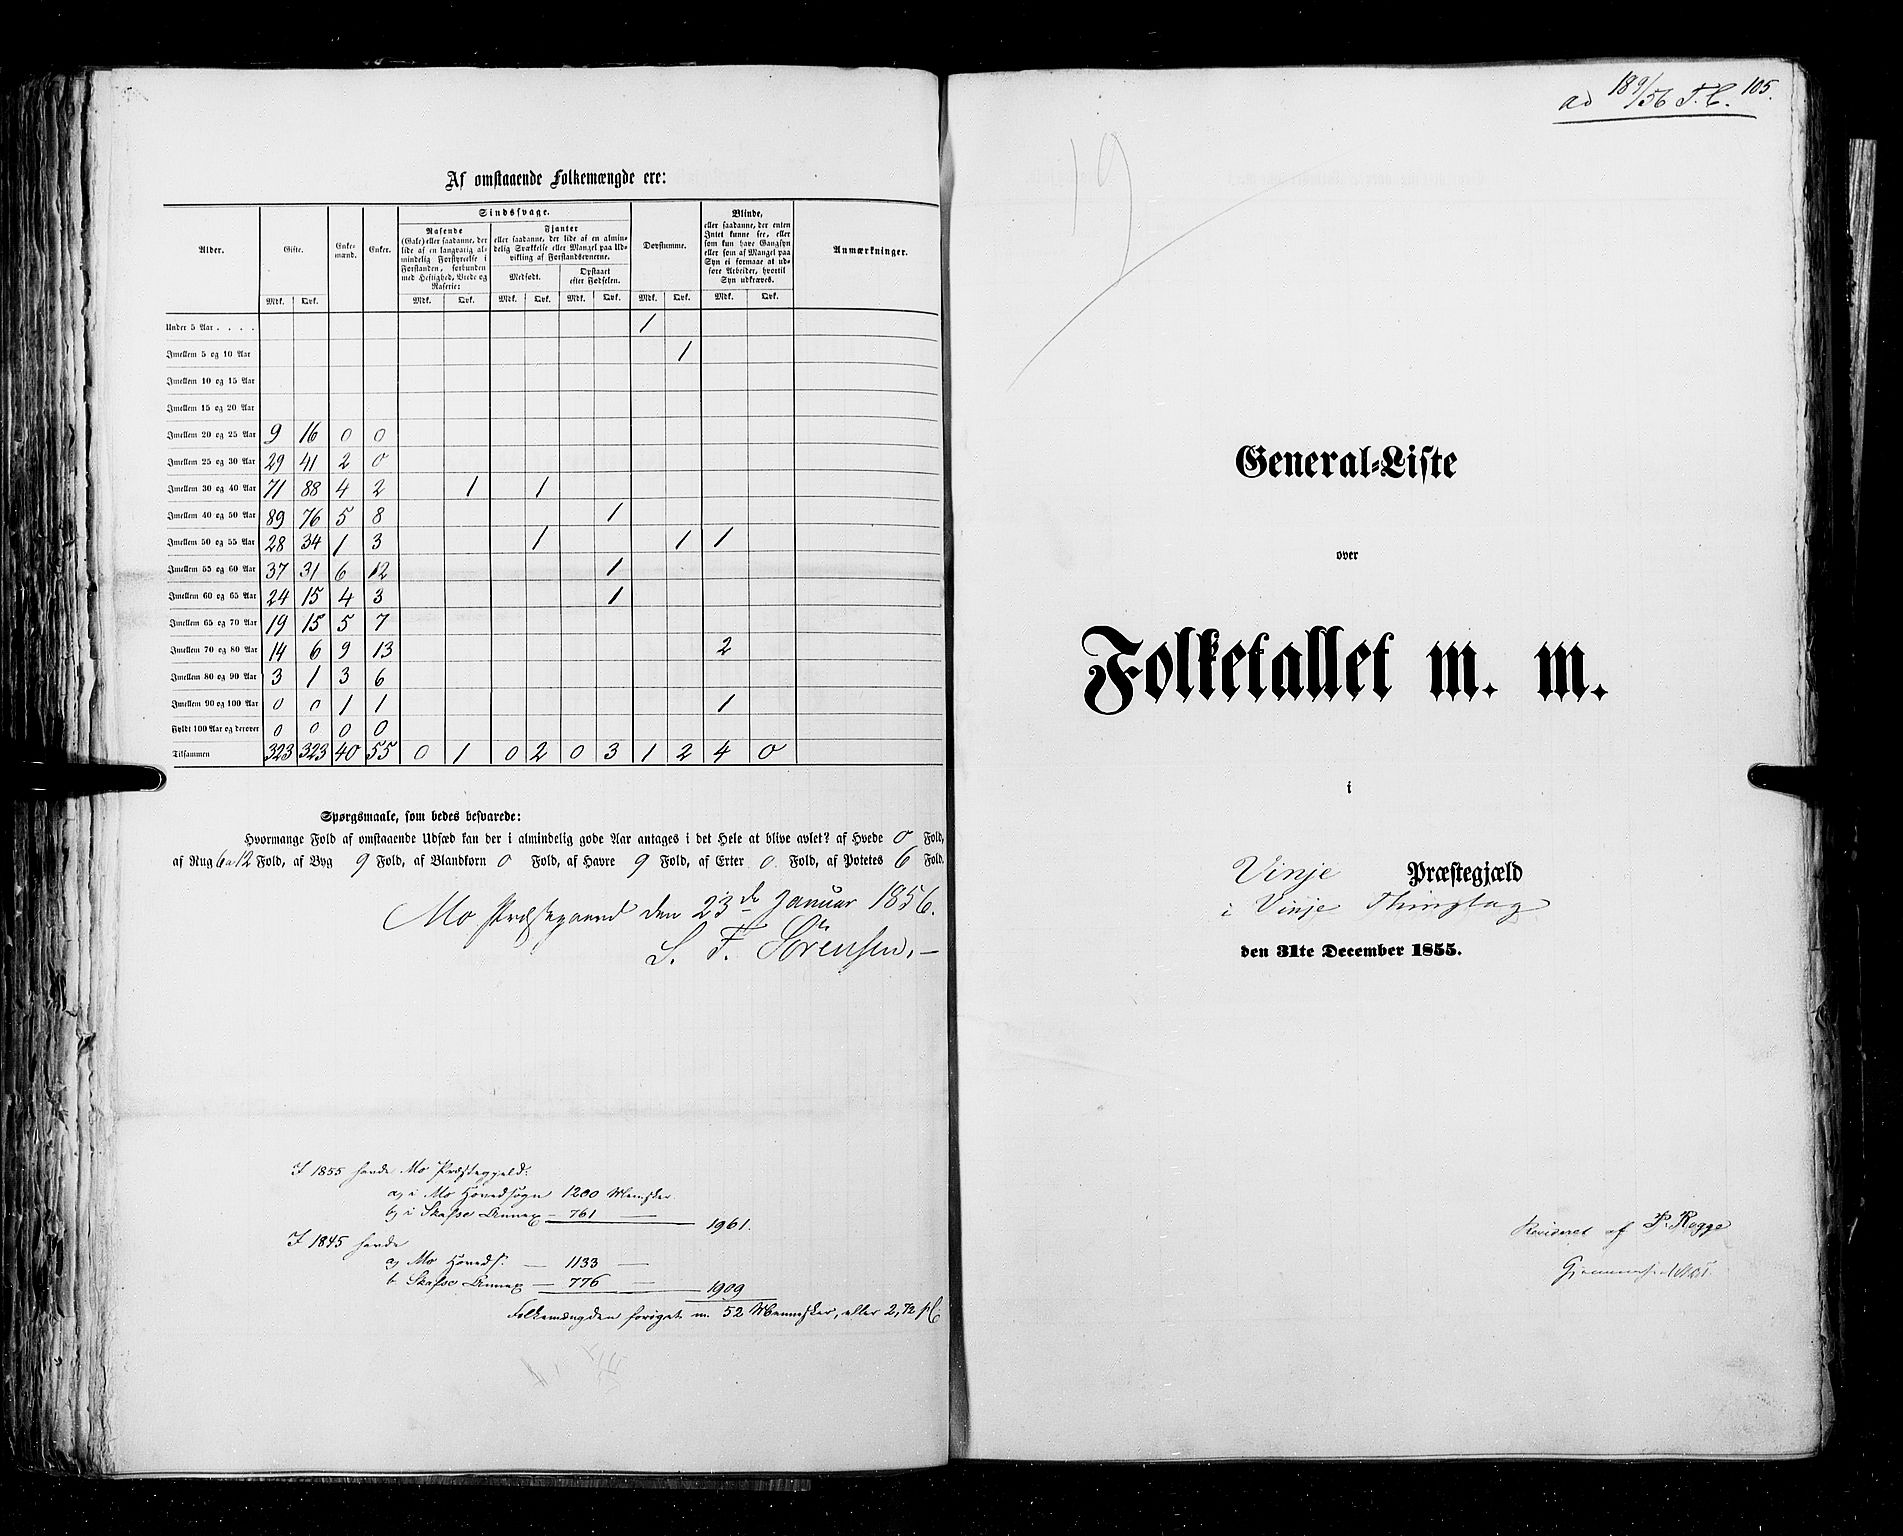 Af omstaaende Folkemængde ere:
Alder. Gifte. Enkemænd. Enker. Sindssvage. Døvstumme. Blinde, eller saadanne, der enten Intet kunne see, eller som kun have Gangsyn eller som af Mangel paa Syn ei formaae at udføre Arbeider, hvortil Syn udkræves. Anmærkninger.
Rasende (Gale) eller saadanne, der lide af en langvarig almindelig Forstyrrelse i Forstanden, forbunden med Heftighed, Vrede og Raserie:
Fjanter eller saadanne, der lide af en almindelig Svækkelse eller Mangel paa Udvikling af Forstandsevnerne.
Medfødt. Opstaaet efter Fødselen.
Mdk. Qvk. Mdk. Qvk. Mdk. Qvk. Mdk. Qvk. Mdk. Qvk. Mdk. Qvk.
Under 5 Aar . . . . 1
Imellem 5 og 10 Aar 1
Imellem 10 og 15 Aar
Imellem 15 og 20 Aar
Imellem 20 og 25 Aar 9 16 0 0
Imellem 25 og 30 Aar 29 41 2 0
Imellem 30 og 40 Aar 71 88 4 2 1 1
Imellem 40 og 50 Aar 89 76 5 8 1
Imellem 50 og 55 Aar 28 34 1 3 1 1 1
Imellem 55 og 60 Aar 37 31 6 12 1
Imellem 60 og 65 Aar 24 15 4 3 1
Imellem 65 og 70 Aar 19 15 5 7
Imellem 70 og 80 Aar 14 6 9 13 2
Imellem 80 og 90 Aar 3 1 3 6
Imellem 90 og 100 Aar 0 0 1 1 1
Fyldt 100 Aar og derover 0 0 0 0
Tilsammen 323 323 40 55 0 1 0 2 0 3 1 2 4 0
Spørgsmaale, som bedes besvarede:
Hvormange Fold af omstaaende Udsæd kan der i almindelig gode Aar antages i det Hele at blive avlet? af Hvede 0 Fold,
af Rug 6 a 12 Fold, af Byg 9 Fold, af Blandkorn 0 Fold, af Havre 9 Fold, af Erter 0. Fold, af Potetes 6 Fold.
Mo Præstegaard den 23de Januar 1856.
S. F. Sörensen.
I 1855 havde Mo Præstegjeld:
a) i Mo Hovedsogn 1200 Mensker
b) i Skafse Annex - 761 — 1961.
I 1845 havde
a) Mo Hoveds: — 1133 —
b Skafse Annex — 776 — 1909
Folkemængden foröget m. 52 Mennesker, eller 2,72 pC
ad 189/56 T. C. 105.
19
General-Liste
over
Folketallet m. m.
i
Vinje Præstegjæld
i Vinje Thinglag
den 31te December 1855.
Revideret af P. Rogge